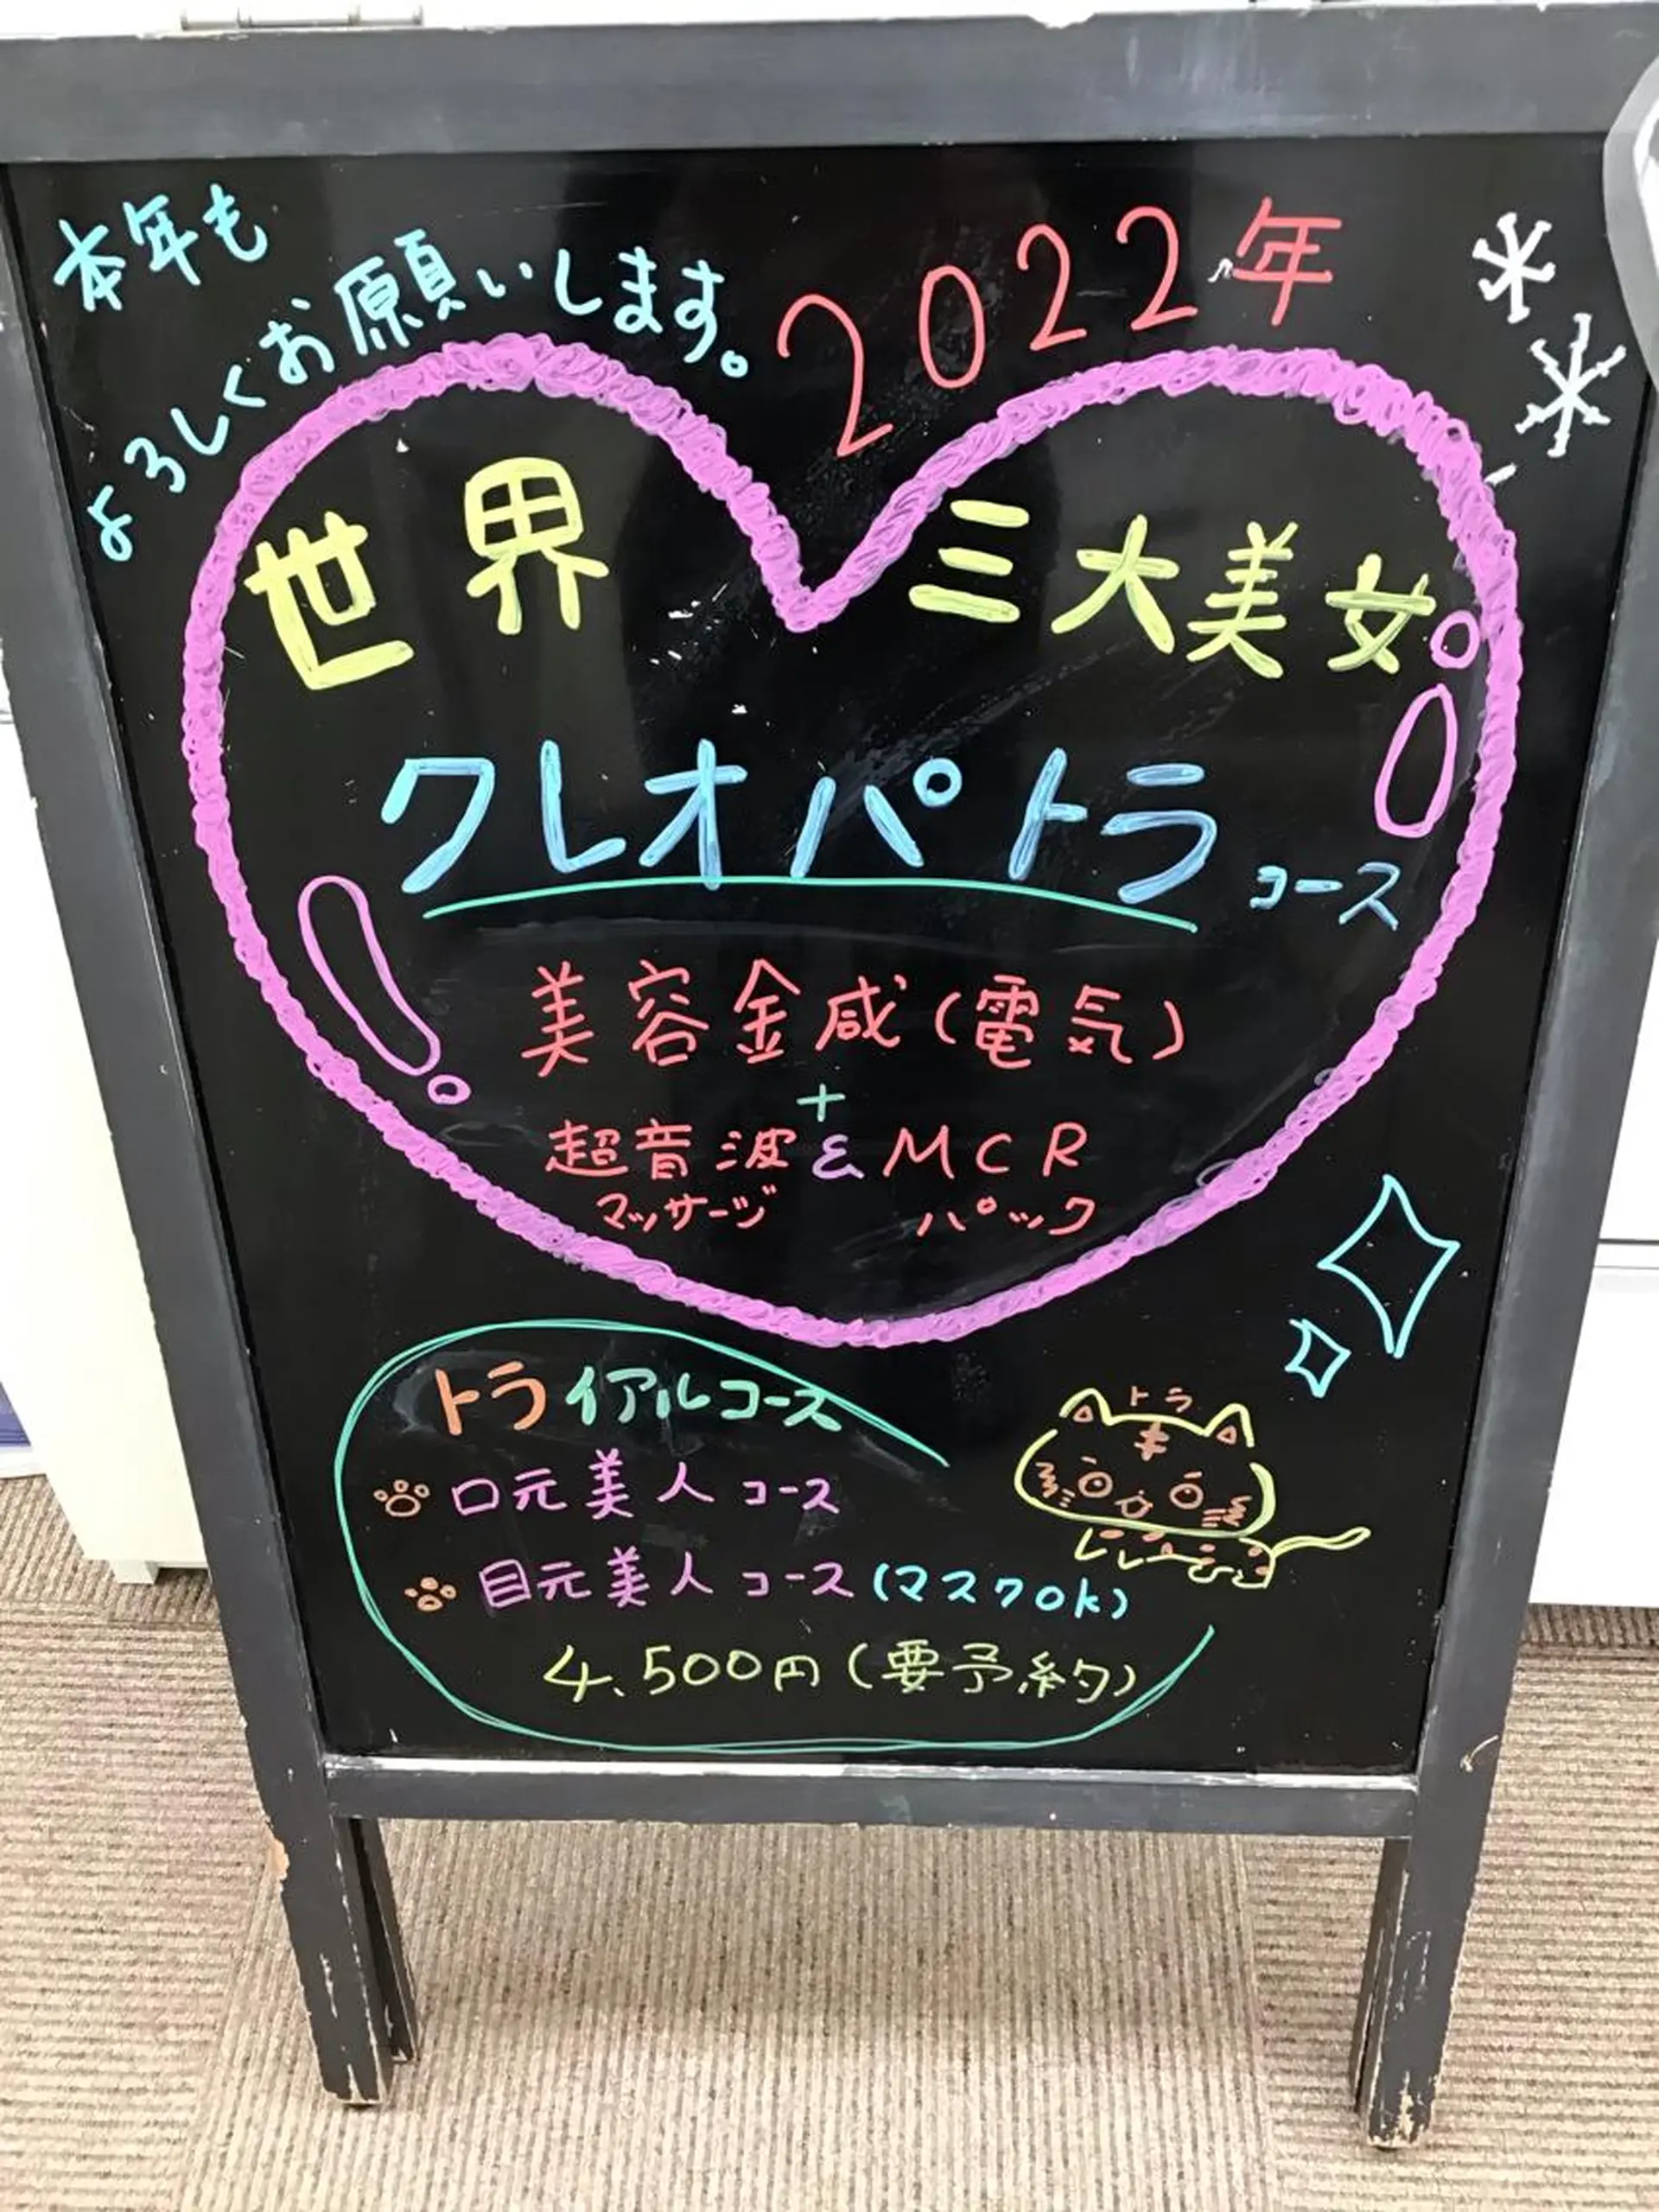 本年も
よろしくお願いします。
2022年
世界三大美女
クレオパトラコース
美容金咸(電気)
+
超音波&MCR
マッサージ パック
トライアルコース
口元美人コース
目元美人コース(マスクOk)
4,500円(要予約)
トラ